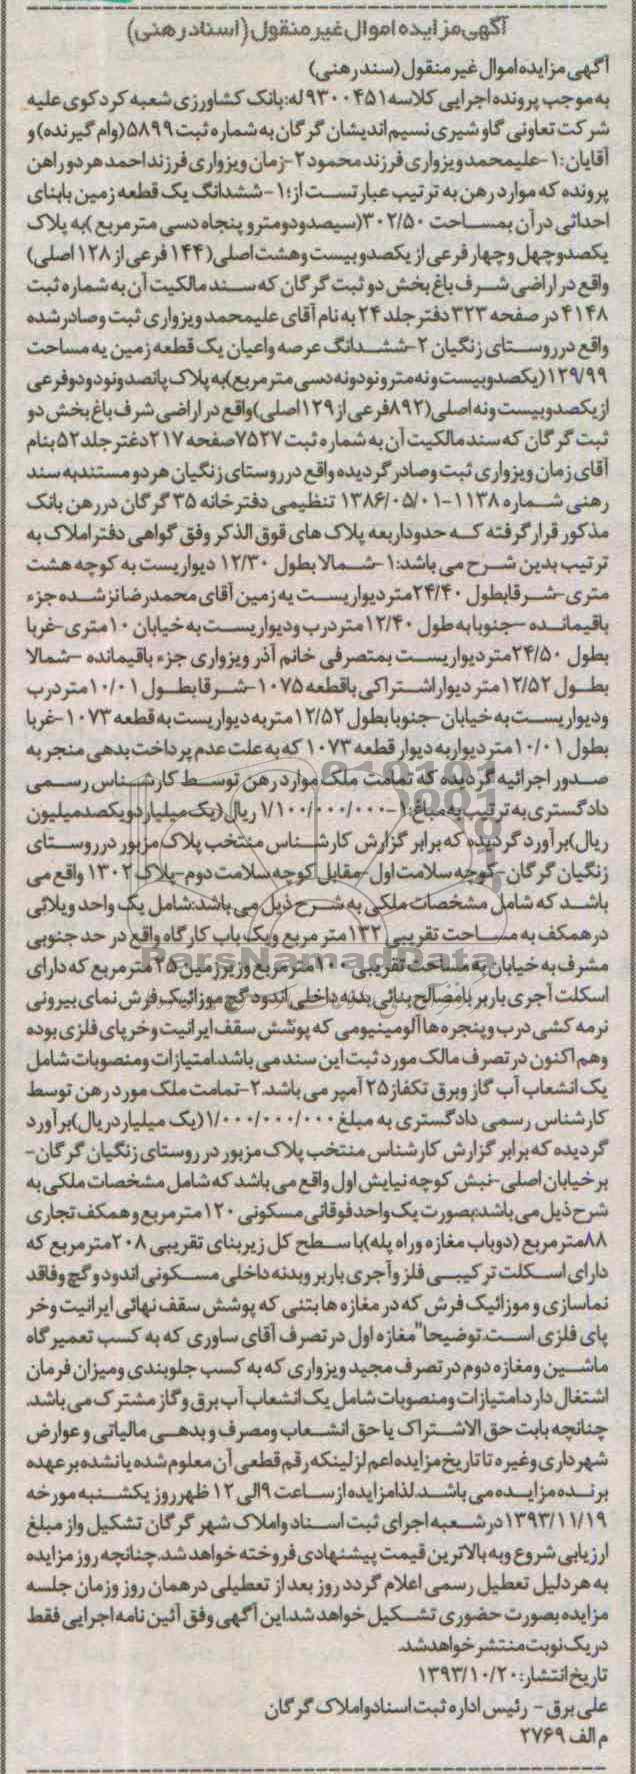 آگهی مزایده اموال غیر منقول (اسناد رهنی)
آگهی مزایده اموال غیر منقول (سند رهنی)
به موجب پرونده اجرایی کلاسه ۹۳۰۰۴۵۱ له: بانک کشاورزی شعبه کردکوی علیه
شرکت تعاونی گاو شیری نسیم اندیشان گرگان به شماره ثبت ۵۸۹۹ (وام گیرنده) و
آقایان: ۱-علیمحمد ویزواری فرزند محمود ۲-زمان ویزواری فرزند احمد هر دو راهن
پرونده که موارد رهن به ترتیب عبارتست از: ۱-ششدانگ یک قطعه زمین بابنای
احداثی در آن بمساحت ۳۰۲/۵۰ (سیصدودومترو پنجاه دسی مترمربع) به پلاک
یکصدوچهل و چهار فرعی از یکصدو بیست وهشت اصلی (۱۴۴ فرعی از ۱۲۸ اصلی)
واقع در اراضی شرف باغ بخش دو ثبت گرگان که سند مالکیت آن به شماره ثبت
۴۱۴۸ در صفحه ۳۲۳ دفتر جلد ۲۴ به نام آقای علیمحمد ویزواری ثبت وصادر شده
واقع در روستای زنگیان ۲-ششدانگ عرصه واعیان یک قطعه زمین به مساحت
۱۲۹/۹۹ (یکصدوبیست ونه مترونودونه دسی مترمربع) به پلاک پانصدونودودو فرعی
از یکصدوبیست ونه اصلی (۸۹۲ فرعی از ۱۲۹ اصلی) واقع در اراضی شرف باغ بخش دو
ثبت گرگان که سند مالکیت آن به شماره ثبت ۷۵۲۷ صفحه ۲۱۷ دغتر جلد ۵۲ بنام
آقای زمان ویزواری ثبت وصادر گردیده واقع در روستای زنگیان هر دو مستند به سند
رهنی شماره ۱۱۳۸-۱۳۸۶/۰۵/۰۱ تنظیمی دفتر خانه ۳۵ گرگان در رهن بانک
مذکور قرار گرفته که حدوداربعه پلاک های فوق الذکر وفق گواهی دفتر املاک به
ترتیب بدین شرح می باشد: ۱-شمالا بطول ۱۲/۳۰ دیواریست به کوچه هشت
متری-شرقابطول ۲۴/۴۰ متر دیواریست به زمین آقای محمدرضا نژشده جزء
باقیمانده -جنوبا به طول ۱۲/۴۰ متردرب ودیواریست به خیابان ۱۰متری-غربا
بطول ۲۴/۵۰ متر دیواریست بمتصرفی خانم آذر ویزواری جزء باقیمانده -شمالا
بطول ۱۲/۵۲ متر دیوار اشتراکی باقطعه ۱۰۷۵-شرقا بطول ۱۰/۰۱ متردرب
ودیواریست به خیابان-جنوبا بطول ۱۲/۵۲ متربه دیواریست به قطعه ۱۰۷۳-غربا
بطول ۱۰/۰۱ متر دیواربه دیوار قطعه ۱۰۷۳ که به علت عدم پرداخت بدهی منجر به
صدور اجرائیه گردیده که تمامت ملک موارد رهن توسط کارشناس رسمی
دادگستری به ترتیب به مبلغ: ۱-۱/۱۰۰/۰۰۰/۰۰۰ ریال (یک میلیاردو یکصدمیلیون
ریال) برآورد گردیده که برابر گزارش کارشناس منتخب پلاک مزبور در روستای
زنگیان گرگان-کوچه سلامت اول-مقابل کوچه سلامت دوم-پلاک ۱۳۰۲ واقع می
باشد که شامل مشخصات ملکی به شرح ذیل می باشد: شامل یک واحد ویلائی
در همکف به مساحت تقریبی ۱۳۲ متر مربع ویک باب کارگاه واقع در حد جنوبی
مشرف به خیابان به مساحت تقریبی ۱۰۰ مترمربع وزیرزمین ۲۵ مترمربع که دارای
اسکلت آجری باربر با مصالح بنائی بدنه داخلی اندود گچ موزائیک فرش نمای بیرونی
نرمه کشی درب وپنجره هاآلومینیومی که پوشش سقف ایرانیت وخرپای فلزی بوده
وهم اکنون در تصرف مالک مورد ثبت این سند می باشد. امتیازات ومنصوبات شامل
یک انشعاب آب گاز وبرق تکفاز ۲۵ آمپر می باشد. ۲-تمامت ملک مورد رهن توسط
کارشناس رسمی دادگستری به مبلغ ۱/۰۰۰/۰۰۰/۰۰۰ (یک میلیارد ریال) برآورد
گردیده که برابر گزارش کارشناس منتخب پلاک مزبور در روستای زنگیان گرگان-
بر خیابان اصلی-نبش کوچه نیایش اول واقع می باشد که شامل مشخصات ملکی به
شرح ذیل می باشد: بصورت یک واحد فوقانی مسکونی ۱۲۰ متر مربع و همکف تجاری
۸۸ متر مربع (دوباب مغازه وراه پله) با سطح کل زیربنای تقریبی ۲۰۸ مترمربع که
دارای اسکلت ترکیبی فلز وآجری باربر وبدنه داخلی مسکونی اندود گچ وفاقد
نماسازی و موزائیک فرش که در مغازه ها بتنی که پوشش سقف نهائی ایرانیت وخر
پای فلزی است. توضیحا" مغازه اول در تصرف آقای ساوری که به کسب تعمیرگاه
ماشین ومغازه دوم در تصرف مجید ویزواری که به کسب جلوبندی ومیزان فرمان
اشتغال دارد. امتیازات ومنصوبات شامل یک انشعاب آب برق وگاز مشترک می باشد.
چنانچه بابت حق الاشتراک یا حق انشعاب ومصرف و بدهی مالیاتی و عوارض
شهرداری وغیره تا تاریخ مزایده اعم لزلینکه رقم قطعی آن معلوم شده یا نشده بر عهده
برنده مزایده می باشد. لذا مزایده از ساعت ۹ الی ۱۲ ظهر روز یکشنبه مورخه
۱۳۹۳/۱۱/۱۹ در شعبه اجرای ثبت اسناد واملاک شهر گرگان تشکیل واز مبلغ
ارزیابی شروع وبه بالاترین قیمت پیشنهادی فروخته خواهد شد. چنانچه روز مزایده
به هر دلیل تعطیل رسمی اعلام گردد روز بعد از تعطیلی در همان روز وزمان جلسه
مزایده بصورت حضوری تشکیل خواهد شد. این آگهی وفق آئین نامه اجرایی فقط
در یک نوبت منتشر خواهدشد.
تاریخ انتشار: ۱۳۹۳/۱۰/۲۰
علی برق - رئیس اداره ثبت اسنادواملاک گرگان
م الف ۲۷۶۹
ParsNamadData